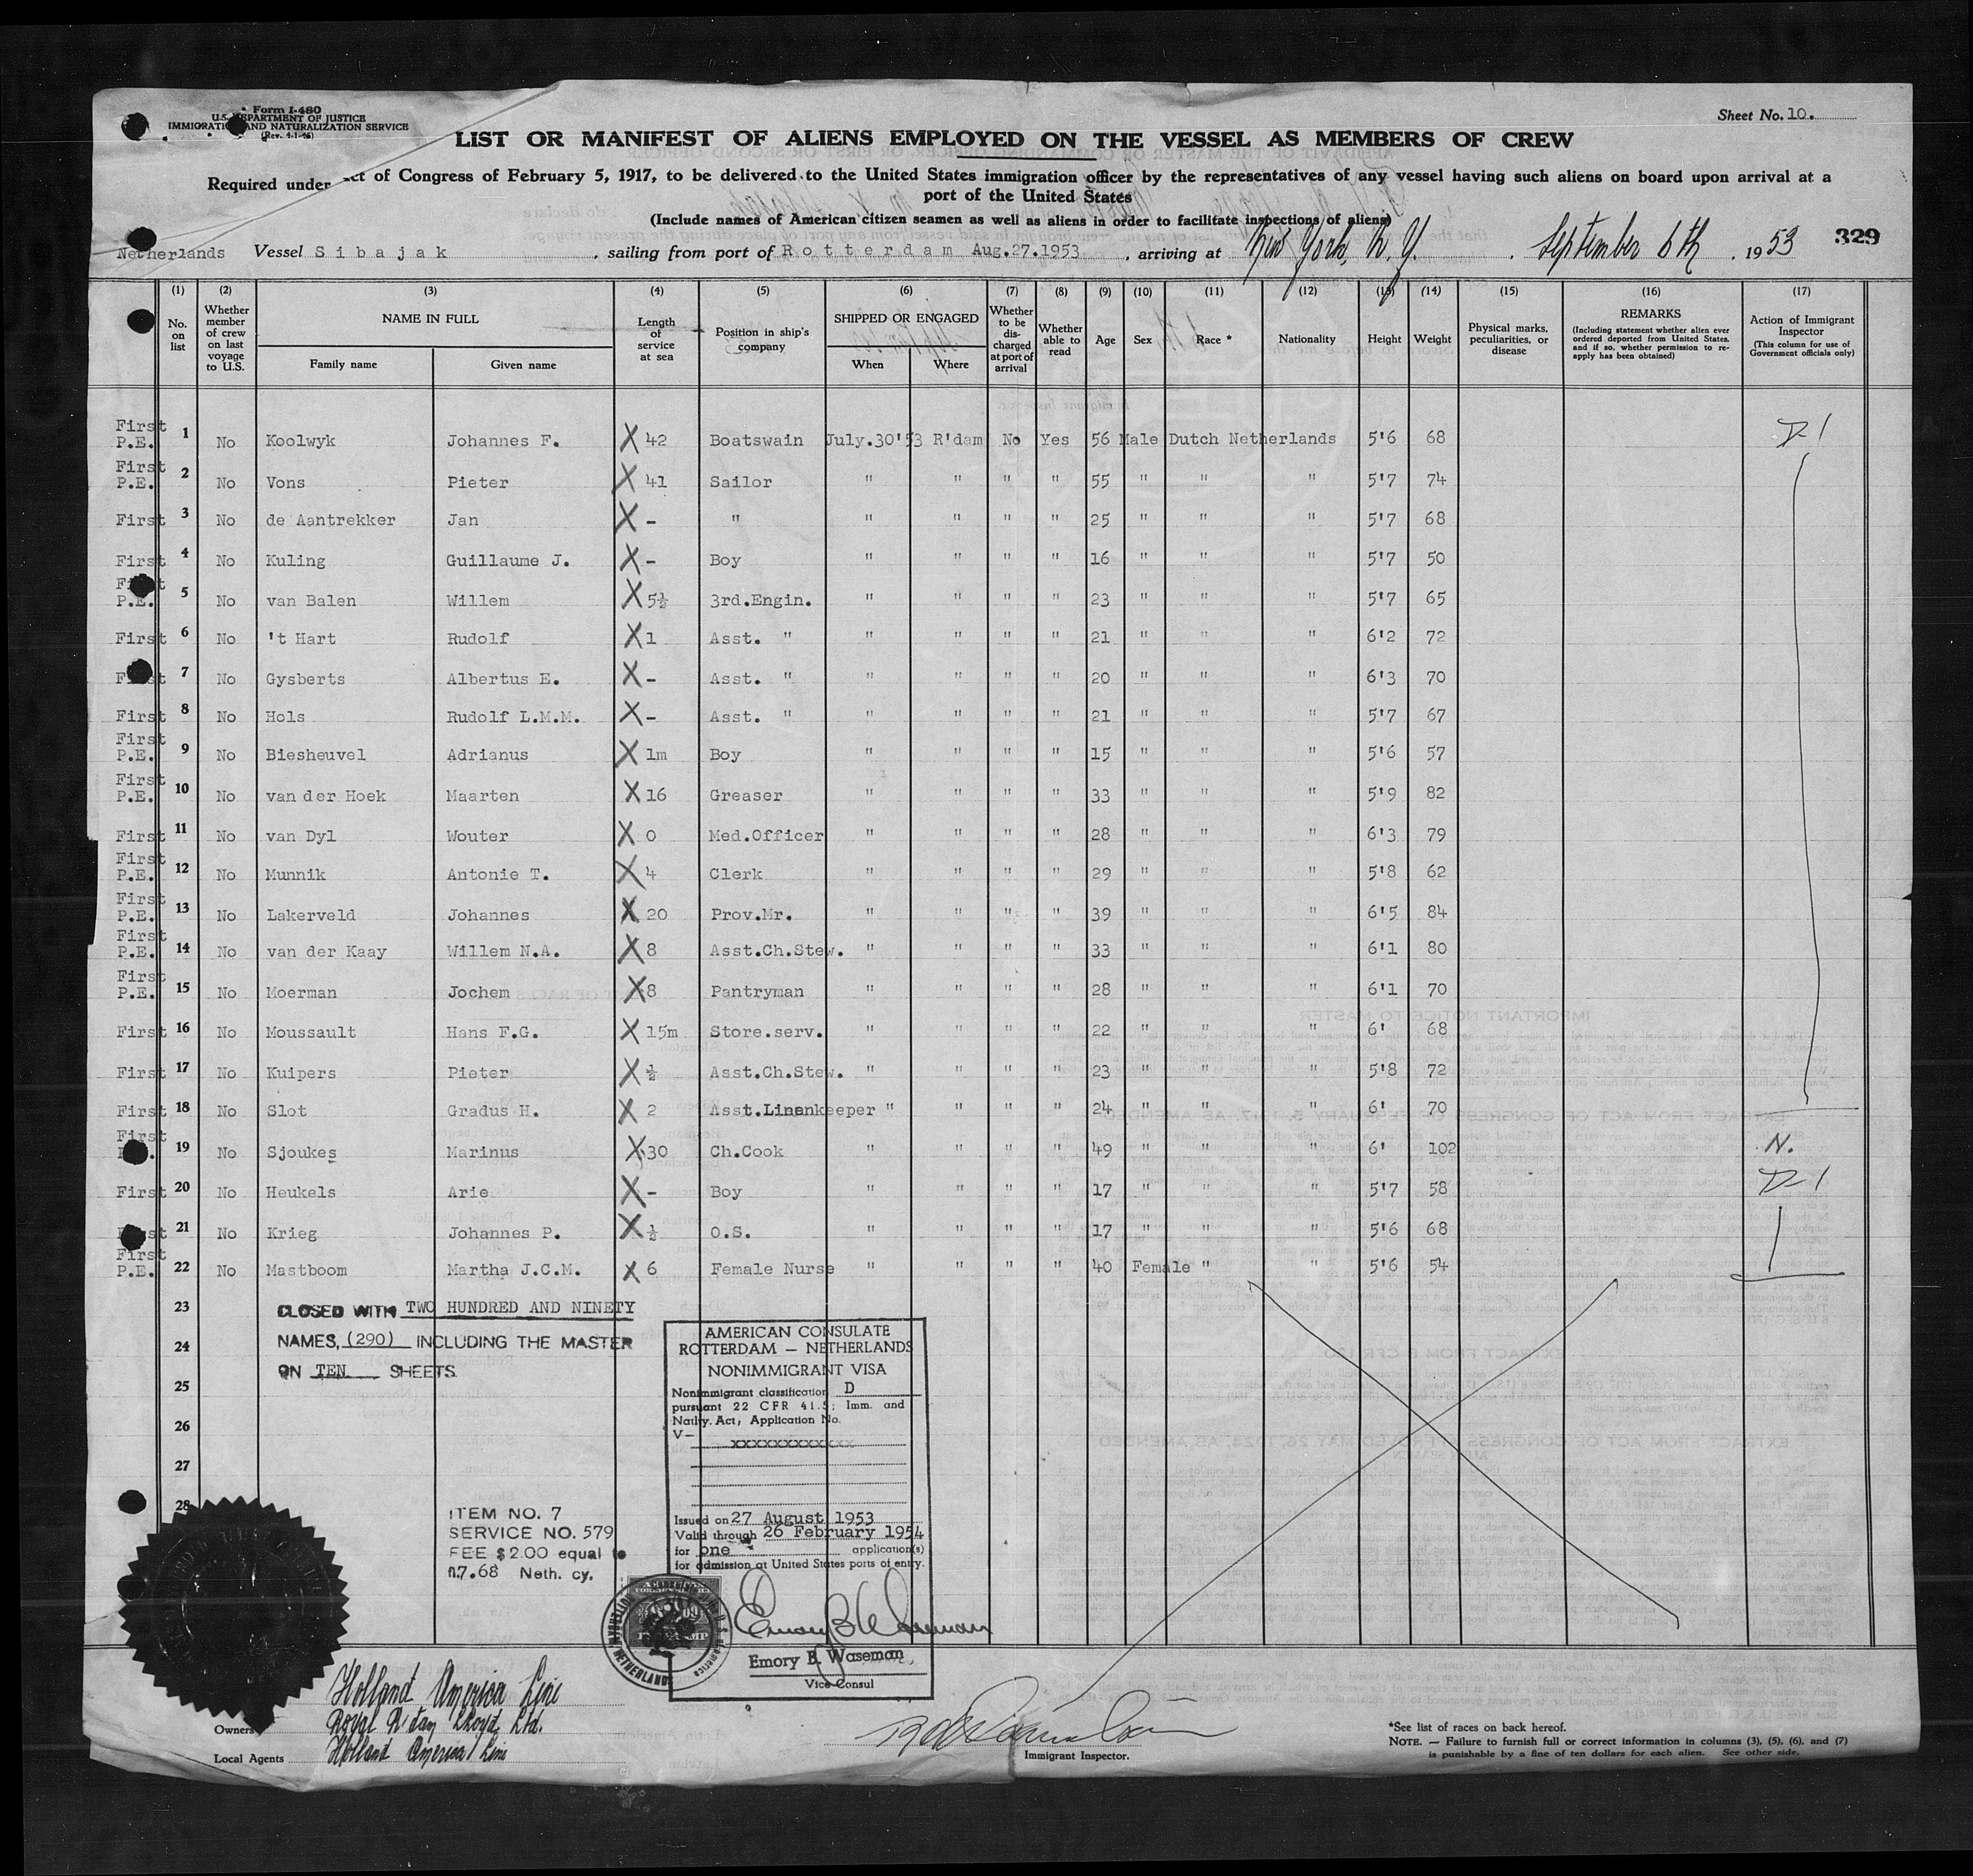 Form I-480
U.S. DEPARTMENT OF JUSTICE
IMMIGRATION AND NATURALIZATION SERVICE
(Rev. 4-1-46)
Sheet No. 10.
LIST OR MANIFEST OF ALIENS EMPLOYED ON THE VESSEL AS MEMBERS OF CREW
Required under Act of Congress of February 5, 1917, to be delivered to the United States immigration officer by the representatives of any vessel having such aliens on board upon arrival at a
port of the United States
(Include names of American citizen seamen as well as aliens in order to facilitate inspections of aliens)
Netherlands Vessel Sibajak, sailing from port of Rotterdam Aug.27.1953, arriving at New York, N.Y. September 6th, 1953 329
(1) (2) (3) (4) (5) (6) (7) (8) (9) (10) (11) (12) (13) (14) (15) (16) (17)
No. on list
Whether member of crew on last voyage to U.S.
NAME IN FULL
Family name Given name
Length of service at sea
Position in ship's company
SHIPPED OR ENGAGED
When Where
Whether to be discharged at port of arrival
Whether able to read
Age Sex Race * Nationality Height Weight
Physical marks, peculiarities, or disease
REMARKS
(Including statement whether alien ever ordered deported from United States, and if so, whether permission to reapply has been obtained)
Action of Immigrant Inspector
(This column for use of Government officials only)
First P.E. 1 No Koolwyk Johannes F. X 42 Boatswain July.30'53 R'dam No Yes 56 Male Dutch Netherlands 5'6 68 D-1
First P.E. 2 No Vons Pieter X 41 Sailor " " " " 55 " " " 5'7 74
First 3 No de Aantrekker Jan X - " " " " " 25 " " " 5'7 68
First 4 No Kuling Guillaume J. X - Boy " " " " 16 " " " 5'7 50
First P.E. 5 No van Balen Willem X 5½ 3rd.Engin. " " " " 23 " " " 5'7 65
First 6 No 't Hart Rudolf X 1 Asst. " " " " " 21 " " " 6'2 72
First 7 No Gysberts Albertus E. X - Asst. " " " " " 20 " " " 6'3 70
First 8 No Hols Rudolf L.M.M. X - Asst. " " " " " 21 " " " 5'7 67
First P.E. 9 No Biesheuvel Adrianus X 1m Boy " " " " 15 " " " 5'6 57
First P.E. 10 No van der Hoek Maarten X 16 Greaser " " " " 33 " " " 5'9 82
First 11 No van Dyl Wouter X 0 Med.Officer " " " " 28 " " " 6'3 79
First P.E. 12 No Munnik Antonie T. X 4 Clerk " " " " 29 " " " 5'8 62
First P.E. 13 No Lakerveld Johannes X 20 Prov.Mr. " " " " 39 " " " 6'5 84
First P.E. 14 No van der Kaay Willem N.A. X 8 Asst.Ch.Stew. " " " " 33 " " " 6'1 80
First P.E. 15 No Moerman Jochem X 8 Pantryman " " " " 28 " " " 6'1 70
First 16 No Moussault Hans F.G. X 15m Store.serv. " " " " 22 " " " 6' 68
First 17 No Kuipers Pieter X ½ Asst.Ch.Stew. " " " " 23 " " " 5'8 72
First 18 No Slot Gradus H. X 2 Asst.Linenkeeper " " " " 24 " " " 6' 70
First 19 No Sjoukes Marinus X 30 Ch.Cook " " " " 49 " " " 6' 102 N.
First 20 No Heukels Arie X - Boy " " " " 17 " " " 5'7 58 D-1
First 21 No Krieg Johannes P. X ½ O.S. " " " " 17 " " " 5'6 68
First P.E. 22 No Mastboom Martha J.C.M. X 6 Female Nurse " " " " 40 Female " " 5'6 54
23
24
25
26
27
28
CLOSED WITH TWO HUNDRED AND NINETY
NAMES, (290) INCLUDING THE MASTER
ON TEN SHEETS
AMERICAN CONSULATE
ROTTERDAM — NETHERLANDS
NONIMMIGRANT VISA
Nonimmigrant classification D
pursuant 22 CFR 41.5; Imm. and
Natly. Act, Application No.
V- xxxxxxxxxxxxx
Issued on 27 August 1953
Valid through 26 February 1954
for one application(s)
for admission at United States ports of entry.
Emory B. Waseman
Emory B. Waseman
Vice Consul
ITEM NO. 7
SERVICE NO. 579
FEE $2.00 equal to
fl.7.68 Neth. cy.
Holland America Line
Owners Royal R'dam Lloyd, Ltd.
Local Agents Holland America Line
Immigrant Inspector.
*See list of races on back hereof.
NOTE. — Failure to furnish full or correct information in columns (3), (5), (6), and (7)
is punishable by a fine of ten dollars for each alien. See other side.